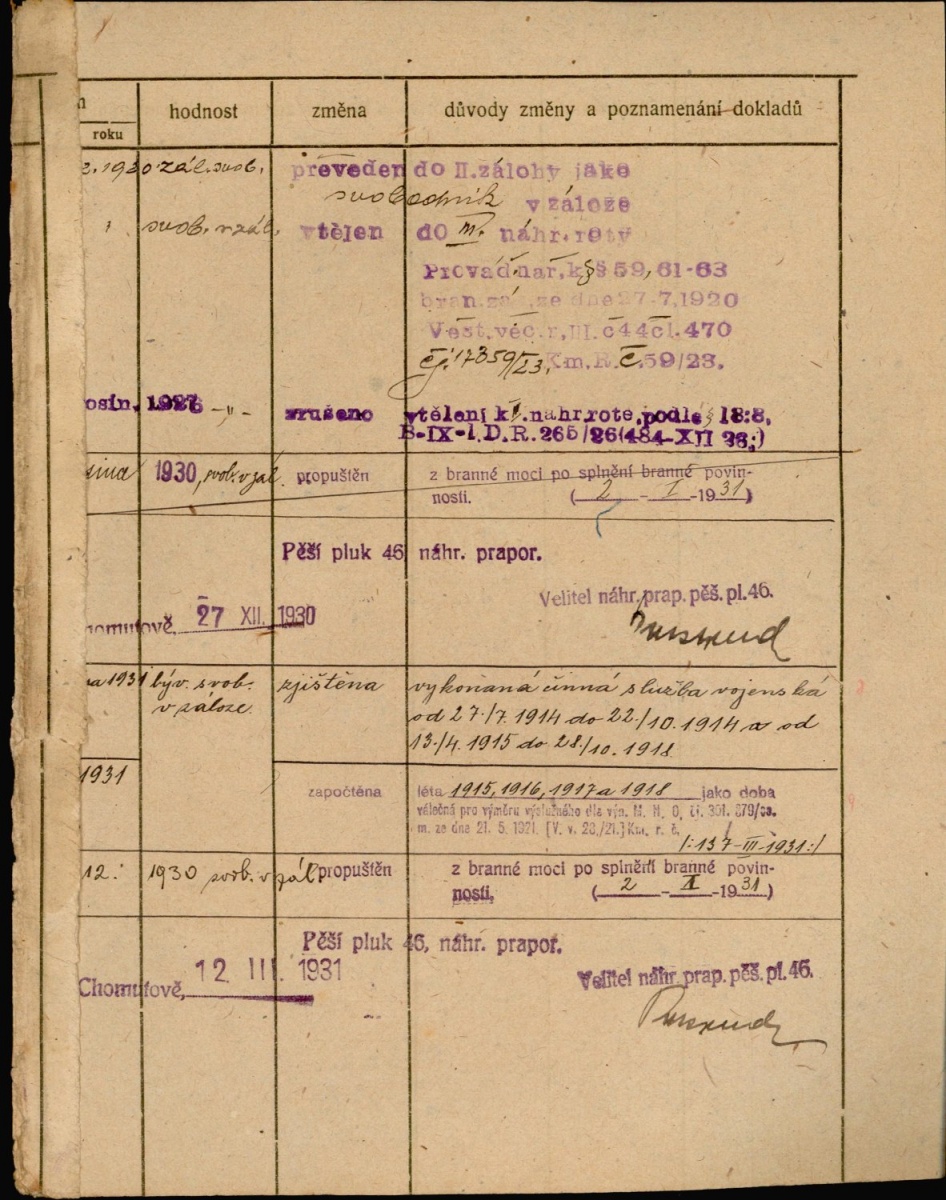 hodnost změna důvody změny a poznamenání dokladů
roku
1930 zál. svob. převeden do II. zálohy jako
svobodník v záloze
" svob. v zál. vtělen do III. náhr. roty
Provád. nař. k §§ 59, 61-63
bran. zá. ze dne 27.7.1920
Věst. věc. r. III. č 44 čl. 470
čj. 17359/23. Km. R. č. 59/23.
osin. 1926 -"- zrušeno vtělení k náhr. rote, podle § 18:8,
B-IX-1. D. R. 265/26 (484-XII 26:)
sina 1930, svob. v zál. propuštěn z branné moci po splnění branné povin-
nosti. (2 - I - 1931)
Pěší pluk 46 náhr. prapor.
Velitel náhr. prap. pěš. pl. 46.
homutově, 27 XII. 1930
na 1931 býv. svob. zjištěna vykonaná činná služba vojenská
v záloze od 27./7. 1914 do 22./10. 1914 a od
13./4. 1915 do 28./10. 1918
1931 započtěna léta 1915, 1916, 1917 a 1918 jako doba
válečná pro výměru výslužného dle výn. M. N. O. čj. 351. 879/
m. ze dne 21. 5. 1921. [V. v. 28./21.] Km. r. č.
/:137-III-1931:/
12.: 1930 svob. v zál. propuštěn z branné moci po splnění branné povin-
nosti. (2 - I - 1931)
Pěší pluk 46, náhr. prapor.
Chomutově, 12 III. 1931
Velitel náhr. prap. pěš. pl. 46.